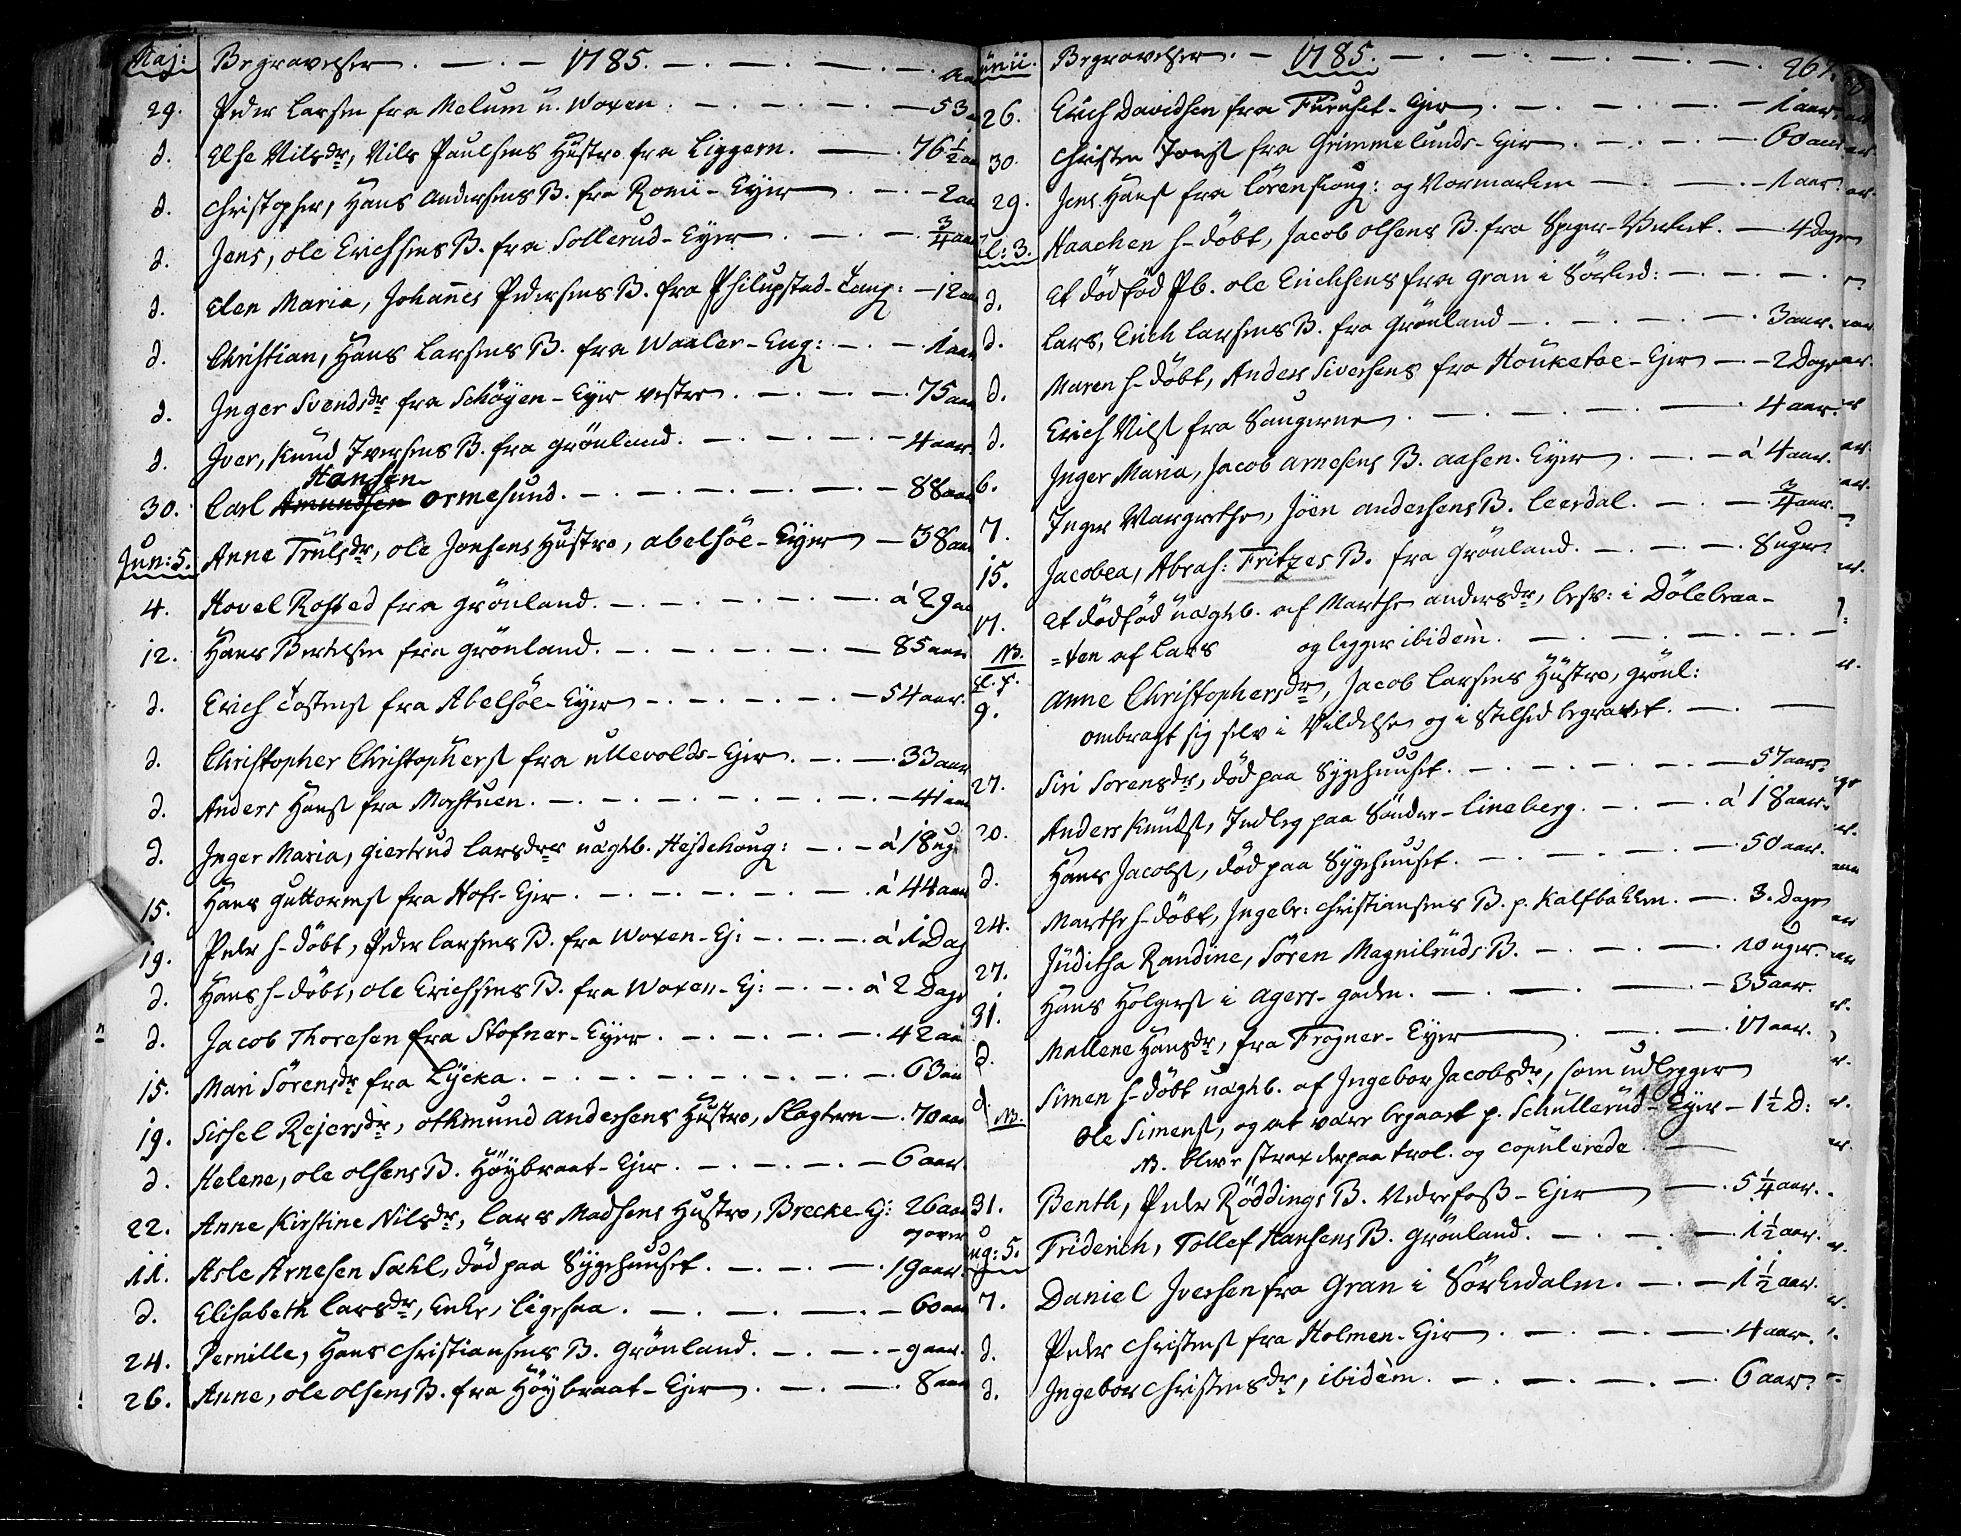 Maj: Begravelser. 1785. aar
29. Peder Larsen fra Melum u. Woxen. 53
d. Else Nilsdr, Nils Paulsens Hustro fra Liggern. 76 1/2 aar
d. Christopher, Hans Andersens B. fra Romü-Eyer 2 aar
d. Jens, Ole Erichsens B. fra Sollerud-Eyer 3/4 aar
d. Elen Maria, Johanes Pedersens B. fra Philupstad-Tang: 12 aar
d. Christian, Hans Larsens B. fra Waaler-Eng: 1 aar
d. Inger Svendsdr fra Schöyen-Eyer vestre. 75 aar
d. Iver, Knud Iversens B. fra Grönland. 4 aar.
30. Carl Amundsen Hansen Ormesund. 88 aar
Jun: 5. Anne Trulsdr, Ole Jonsens Hustro, Abelsöe-Eyer 38 aar
4. Hovel Rosted fra Grönland. á 29 aar
12. Hans Bertelsen fra Grönland. 85 aar
d. Erich Tostens fra Abelsöe-Eyer 54 aar.
d. Christopher Christophers fra Ullevolds-Ejer. 33 aar
d. Anders Hans fra Morstuen. 41 aar
d. Inger Maria, Giertrud Larsdrs uægtb. Hejdehoug: á 18 ug
15. Hans Guttorms fra Hofs-Ejer. á 44 aar
19. Peder h-döbt, Peder Larsens B. fra Woxen-Ej: á 1 Dag
d. Hans h-döbt, Ole Erichsens B. fra Woxen-Ej: á 2 Dage
d. Jacob Thoresen fra Stofner-Eyer. 42 aar
15. Mari Sörensdr fra Lycka. 63 aar
19. Sissel Rejersdr, Othmund Andersens Hustro, Slagtern 70 aar
d. Helene, Ole Olsens B. Höybraat-Ejer. 6 aar.
22. Anne Kirstine Nilsdr, Lars Madsens Hustro, Brecke-Ej: 26 aar
11. Asle Arnesen Sahl, död paa Sygehuuset. 19 aar.
d. Elisabeth Larsdr, Enke, Ligesaa. 60 aar
24. Pernille, Hans Christiansens B. Grönland. 9 aar.
26. Anne, Ole Olsens B. fra Höybraat-Ejer. 8 aar
unii. Begravelser. 1785. 267.
26. Erich Davidsen fra Furuset-Ejer 1 aar.
30. Christen Jons fra Grimmelunds-Ejer. 60 aar
29. Jens Hans fra Lörenskoug: og Normarken 1 aar.
ul: 3. Haachen h-döbt, Jacob Olsens B. fra Spiger-Bruket. 4 Dage
d. Et dödföd Pb. Ole Erichsens fra Gran i Sörked:
d. Lars, Erich Larsens B. fra Grönland 3 aar.
d. Maren h-döbt, Anders Siversens fra Houketoe-Ejer 2 Dage
d. Erich Nils fra Saugerne 4 aar.
6. Inger Maria, Jacob Arnesens B. Aasen-Eyer á 4 aar.
7. Inger Margrethe, Jöen Andersens B. Leerdal. 3/4 aar.
15. Jacobea, Abrah: Fritzes B. fra Grönland. 8 uger
17. Et dödföd uægtb. af Marthe Andersdr, besv: i Dölebraa-
NB. =ten af Lars og ligger ibidem.
ul. f. 9. Anne Christophersdr, Jacob Larsens Hustro, Grönl:
ombragt sig selv i Vildelse og i Stilhed begravet.
27. Siri Sorensdr, död paa Sygehuuset. 57 aar.
20. Anders Knuds, Indleg paa Sönder-Lineberg. á 18 aar.
d. Hans Jacobs, död paa Sygehuuset. 50 aar.
24. Marthe h-döbt, Ingebr: Christiansens B. p. Kalfbakken. 3. Dage
27. Juditha Randine, Sören Magnilruds B. 10 uger.
31. Hans Holgers i Agers-gaden. 35 aar.
d. Mallene Hansdr, fra Frogner-Eyer 17 aar.
d. Simen h-döbt uægtb. af Ingebor Jacobsdr, som udlegger
NB. Ole Simens, og at være begaaet p. Schullerud-Eyer 1 1/2 D:
NB. bleve strax derpaa trol. og copulerede.
31. Benth, Peder Röddings B. Nedrefoss-Ejer 5 1/4 aar.
ug: 5. Friderich, Tollef Hansens B. Grönland. 1 1/2 aar.
7. Daniel Iversen fra Gran i Sörkedalen. 1 1/2 aar.
d. Peder Christens fra Holmen-Ejer. 4 aar.
d. Ingebor Christensdr, ibidem. 6 aar.